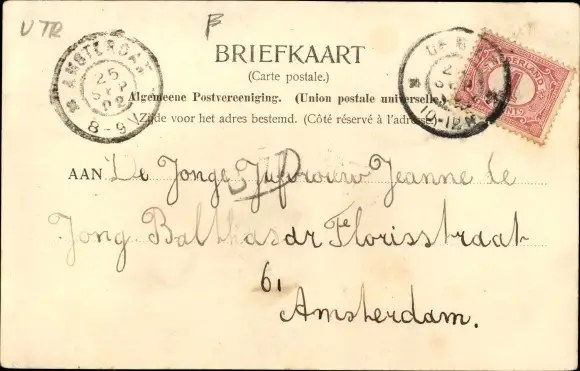 UTR
F
AMSTERDAM
25
SEP
02
8-9V
DE B
10-12V
NEDERLAND
1
CENT
BRIEFKAART
(Carte postale.)
Algemeene Postvereeniging. (Union postale universelle)
Zijde voor het adres bestemd. (Côté réservé à l'adresse)
AAN De Jonge Jufvrouw Jeanne de
Jong Balthasar Florisstraat
61
Amsterdam.